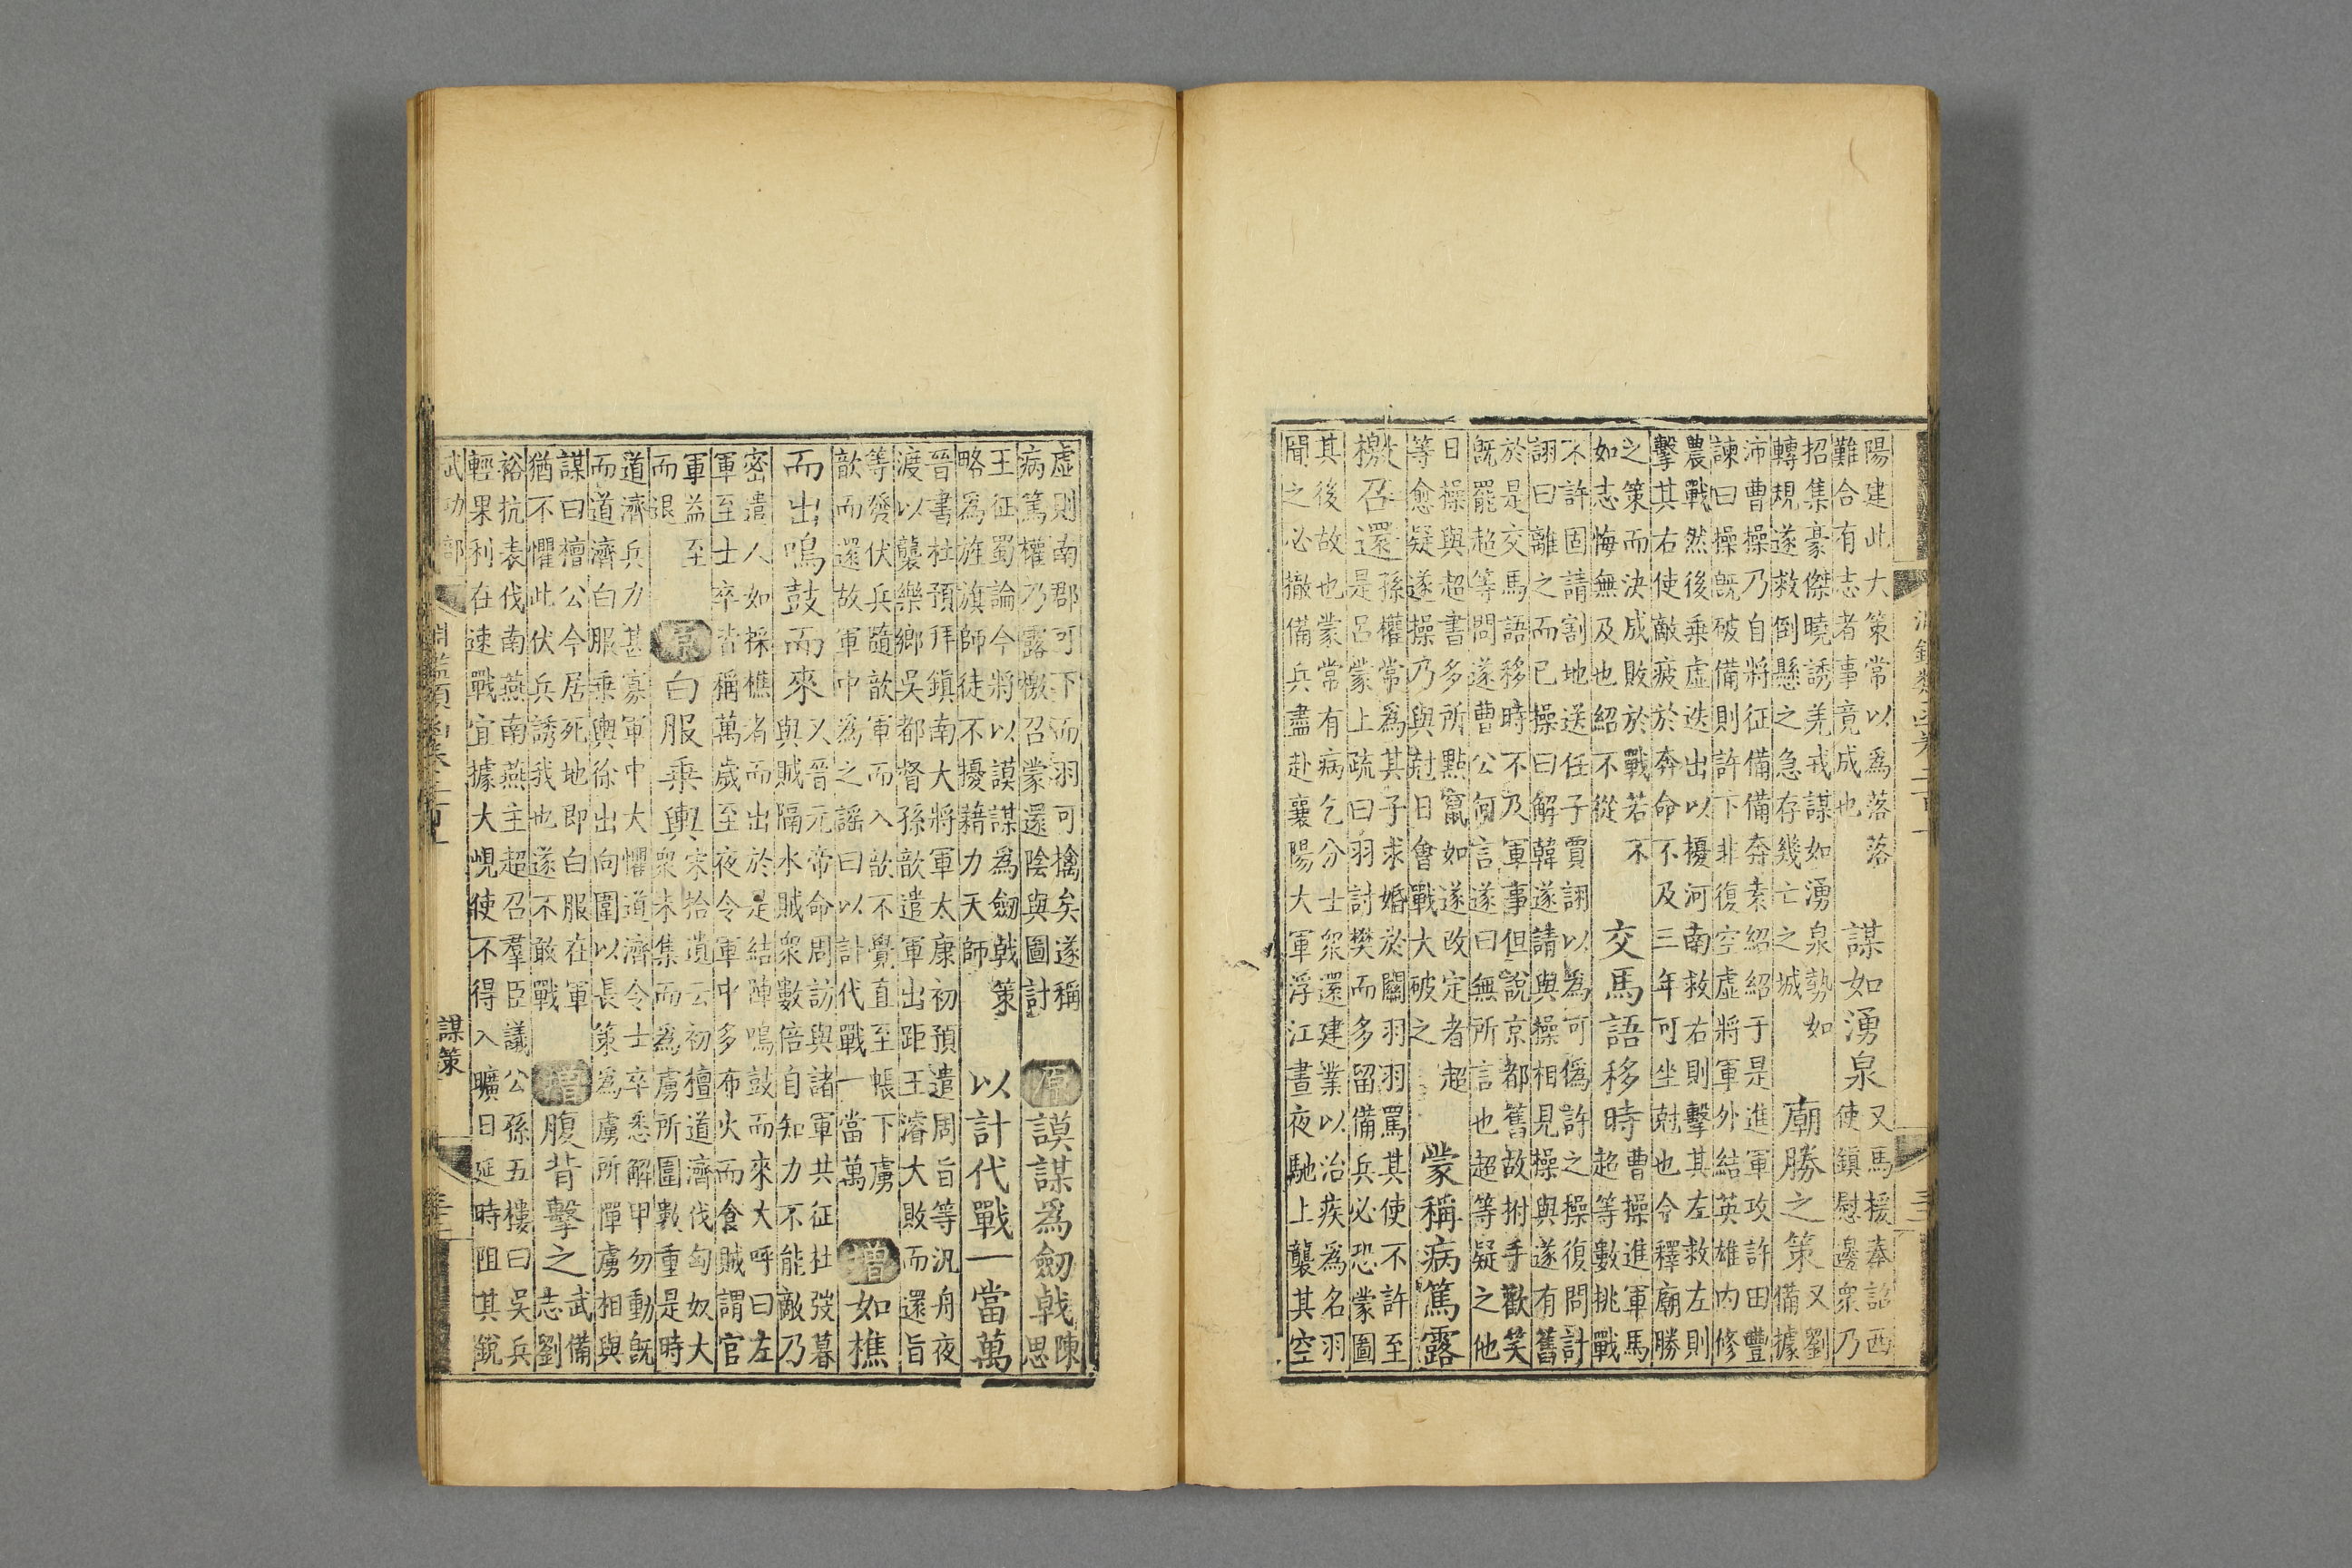 陽建此大策常以爲落落
難合有志者事竟成也
謀如湧泉
又馬援奉詔西
使鎮慰邊衆乃
招集豪傑曉誘羌戎謀如湧泉勢如
轉規遂救倒懸之急存幾亡之城
廟勝之策
又劉
備據
沛曹操乃自將征備備奔袁紹紹于是進軍攻許田豐
諫曰操旣破備則許下非復空虛將軍外結英雄内修
農戰然後乗虛迭出以擾河南救右則擊其左救左則
擊其右使敵疲於奔命不及三年可坐尅也今釋廟勝
之策而決成敗於戰若不
如志悔無及也紹不從
交馬語移時
曹操進軍馬
超等數挑戰
不許固請割地送任子賈詡以爲可僞許之操復問計
詡曰離之而已操曰解韓遂請與操相見操與遂有舊
於是交馬語移時不乃軍事但說京都舊故拊手歡笑
旣罷超等問遂曹公何言遂曰無所言也超等疑之他
日操與超書多所點竄如遂改定者超
等愈疑遂操乃與尅日會戰大破之
蒙稱病篤露
檄召還
孫權常爲其子求婚於關羽羽罵其使不許至
是呂蒙上疏曰羽討樊而多留備兵必恐蒙圖
其後故也蒙常有病乞分士衆還建業以治疾爲名羽
聞之必撤備兵盡赴襄陽大軍浮江晝夜馳上襲其空
虛則南郡可下而羽可擒矣遂稱
病篤權乃露檄召蒙還陰與圖計
原
謨謀爲劒戟
陳
思
王征蜀論今將以謨謀爲劒戟策
略爲旌旗師徒不擾藉力天師
以計代戰一當萬
晉書杜預拜鎮南大將軍太康初預遣周旨等汎舟夜
渡以襲樂鄉吳都督孫歆遣軍出距王濬大敗而還旨
等發伏兵隨歆軍而入歆不覺直至帳下虜
歆而還故軍中爲之謡曰以計代戰一當萬
增
如樵
而出嗚鼓而來
又晉元帝命周訪與諸軍共征杜弢暮
與賊隔水賊衆數倍自知力不能敵乃
密遣人如採樵者而出於是結陣嗚鼓而來大呼曰左
軍至士卒皆稱萬歲至夜令軍中多布火而食賊謂官
軍益至
而退
原
白服乗輿
宋拾遺云初檀道濟伐匈奴大
衆未集而爲虜所圍數重是時
道濟兵力甚寡軍中大懼道濟令士卒悉解甲勿動旣
而道濟白服乗輿徐出向圍以長策爲虜所憚虜相與
謀曰檀公今居死地即白服在軍
猶不懼此伏兵誘我也遂不敢戰
增
腹背擊之
武備
志劉
裕抗表伐南燕南燕主超召羣臣議公孫五樓曰吳兵
輕果利在速戰宜據大峴使不得入曠日延時阻其銳
武功部
謀策